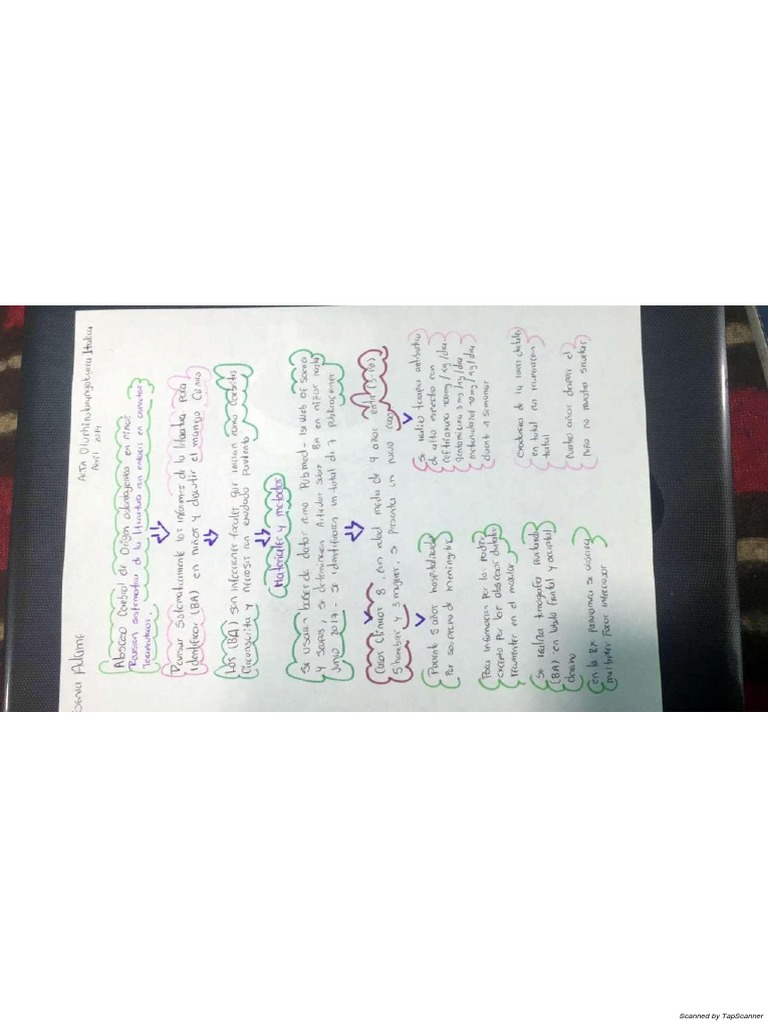 Adame
Acta Otorhinolaryngologica Italica
April 2019
Absceso Cerebral de Origen odontogenico en niños
Revision sistematica de la literatura con enfasis en
Terapeuticos.
Revisar sistematicamente los informes de la literatura para
identificar (BA) en niños y discutir el manejo Clinico
Los (BA) son infecciones focales que inician como cerebritis
circunscrita y necrosis con exudado purulento
Materiales y metodos
Se usaron bases de datos como Pubmed - ISI Web of Science
y Scopus, se determinaron Articulos sobre BA en niños hasta
Junio 2017 - se identificaron un total de 7 publicaciones
Casos Clinicos 8, con edad media de 9 años entre (5-16)
5 hombres y 3 mujeres, se presenta un nuevo caso
Paciente 5 años hospitalizado
por sospecha de meningitis
Poca informacion por los padres
excepto por los abscesos dentales
frecuentes en el maxilar
Se realiza tomografia revelando
(BA) en lobulo frontal y occipital
derecho
en la RX panoramica se observa
multiples Focos infecciosos
Se realizo terapia antibiotica
de alto espectro con
ceftriaxona 100mg/kg/dia-
gentamicina 3 mg/kg/dia
metronidazol 30 mg/kg/dia
durante 4 semanas
en total con
total
años despues el
niño no mostro secuelas